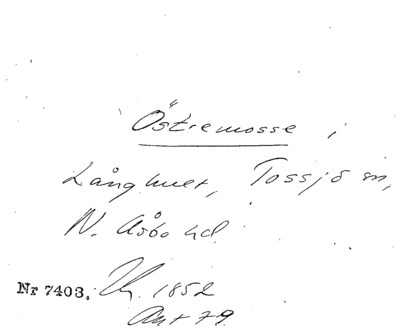 Östremosse i
Långhult, Tossjö sn,
N. Åsbo hd.
Nr 7403. 1852
Ant 79.